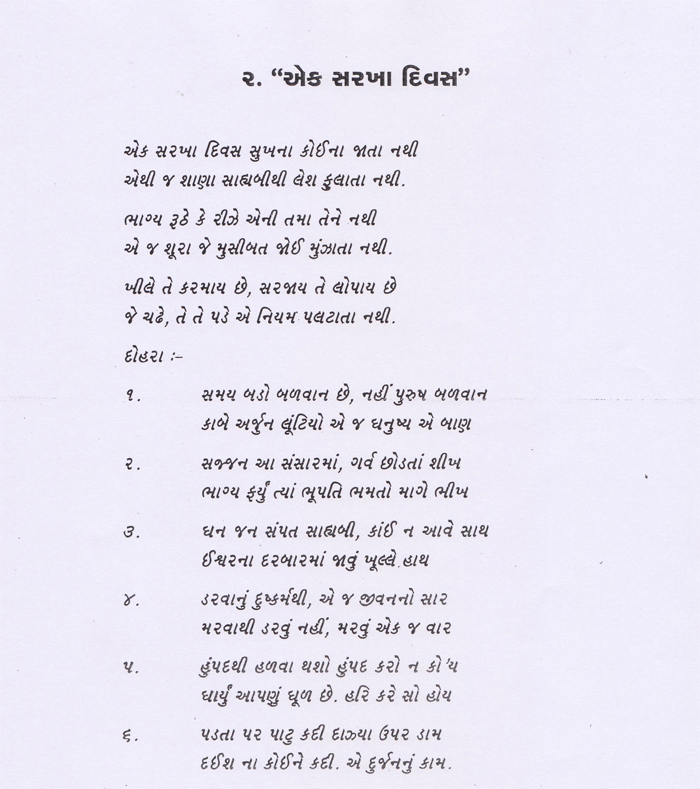 ૨. “એક સરખા દિવસ”
એક સરખા દિવસ સુખના કોઈના જાતા નથી
એથી જ શાણા સાહ્યબીથી લેશ ફુલાતા નથી.
ભાગ્ય રૂઠે કે રીઝે એની તમા તેને નથી
એ જ શૂરા જે મુસીબત જોઈ મુંઝાતા નથી.
ખીલે તે કરમાય છે, સરજાય તે લોપાય છે
જે ચઢે, તે તે પડે એ નિયમ પલટાતા નથી.
દોહરા :–
૧. સમય બડો બળવાન છે, નહીં પુરુષ બળવાન
કાબે અર્જુન લૂંટિયો એ જ ધનુષ્ય એ બાણ
૨. સજ્જન આ સંસારમાં, ગર્વ છોડતાં શીખ
ભાગ્ય ફર્યું ત્યાં ભૂપતિ ભમતો માગે ભીખ
૩. ધન જન સંપત સાહ્યબી, કાંઈ ન આવે સાથ
ઈશ્વરના દરબારમાં જાવું ખૂલ્લે હાથ
૪. ડરવાનું દુષ્કર્મથી, એ જ જીવનનો સાર
મરવાથી ડરવું નહીં, મરવું એક જ વાર
૫. હુંપદથી હળવા થશો હુંપદ કરો ન કો'ય
ધાર્યું આપણું ધૂળ છે. હરિ કરે સો હોય
૬. પડતા પર પાટુ કદી દાઝ્યા ઉપર ડામ
દઈશ ના કોઈને કદી. એ દુર્જનનું કામ.